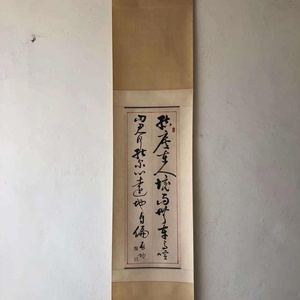 結廬在人境而無車馬喧
問君何能爾心遠地自偏